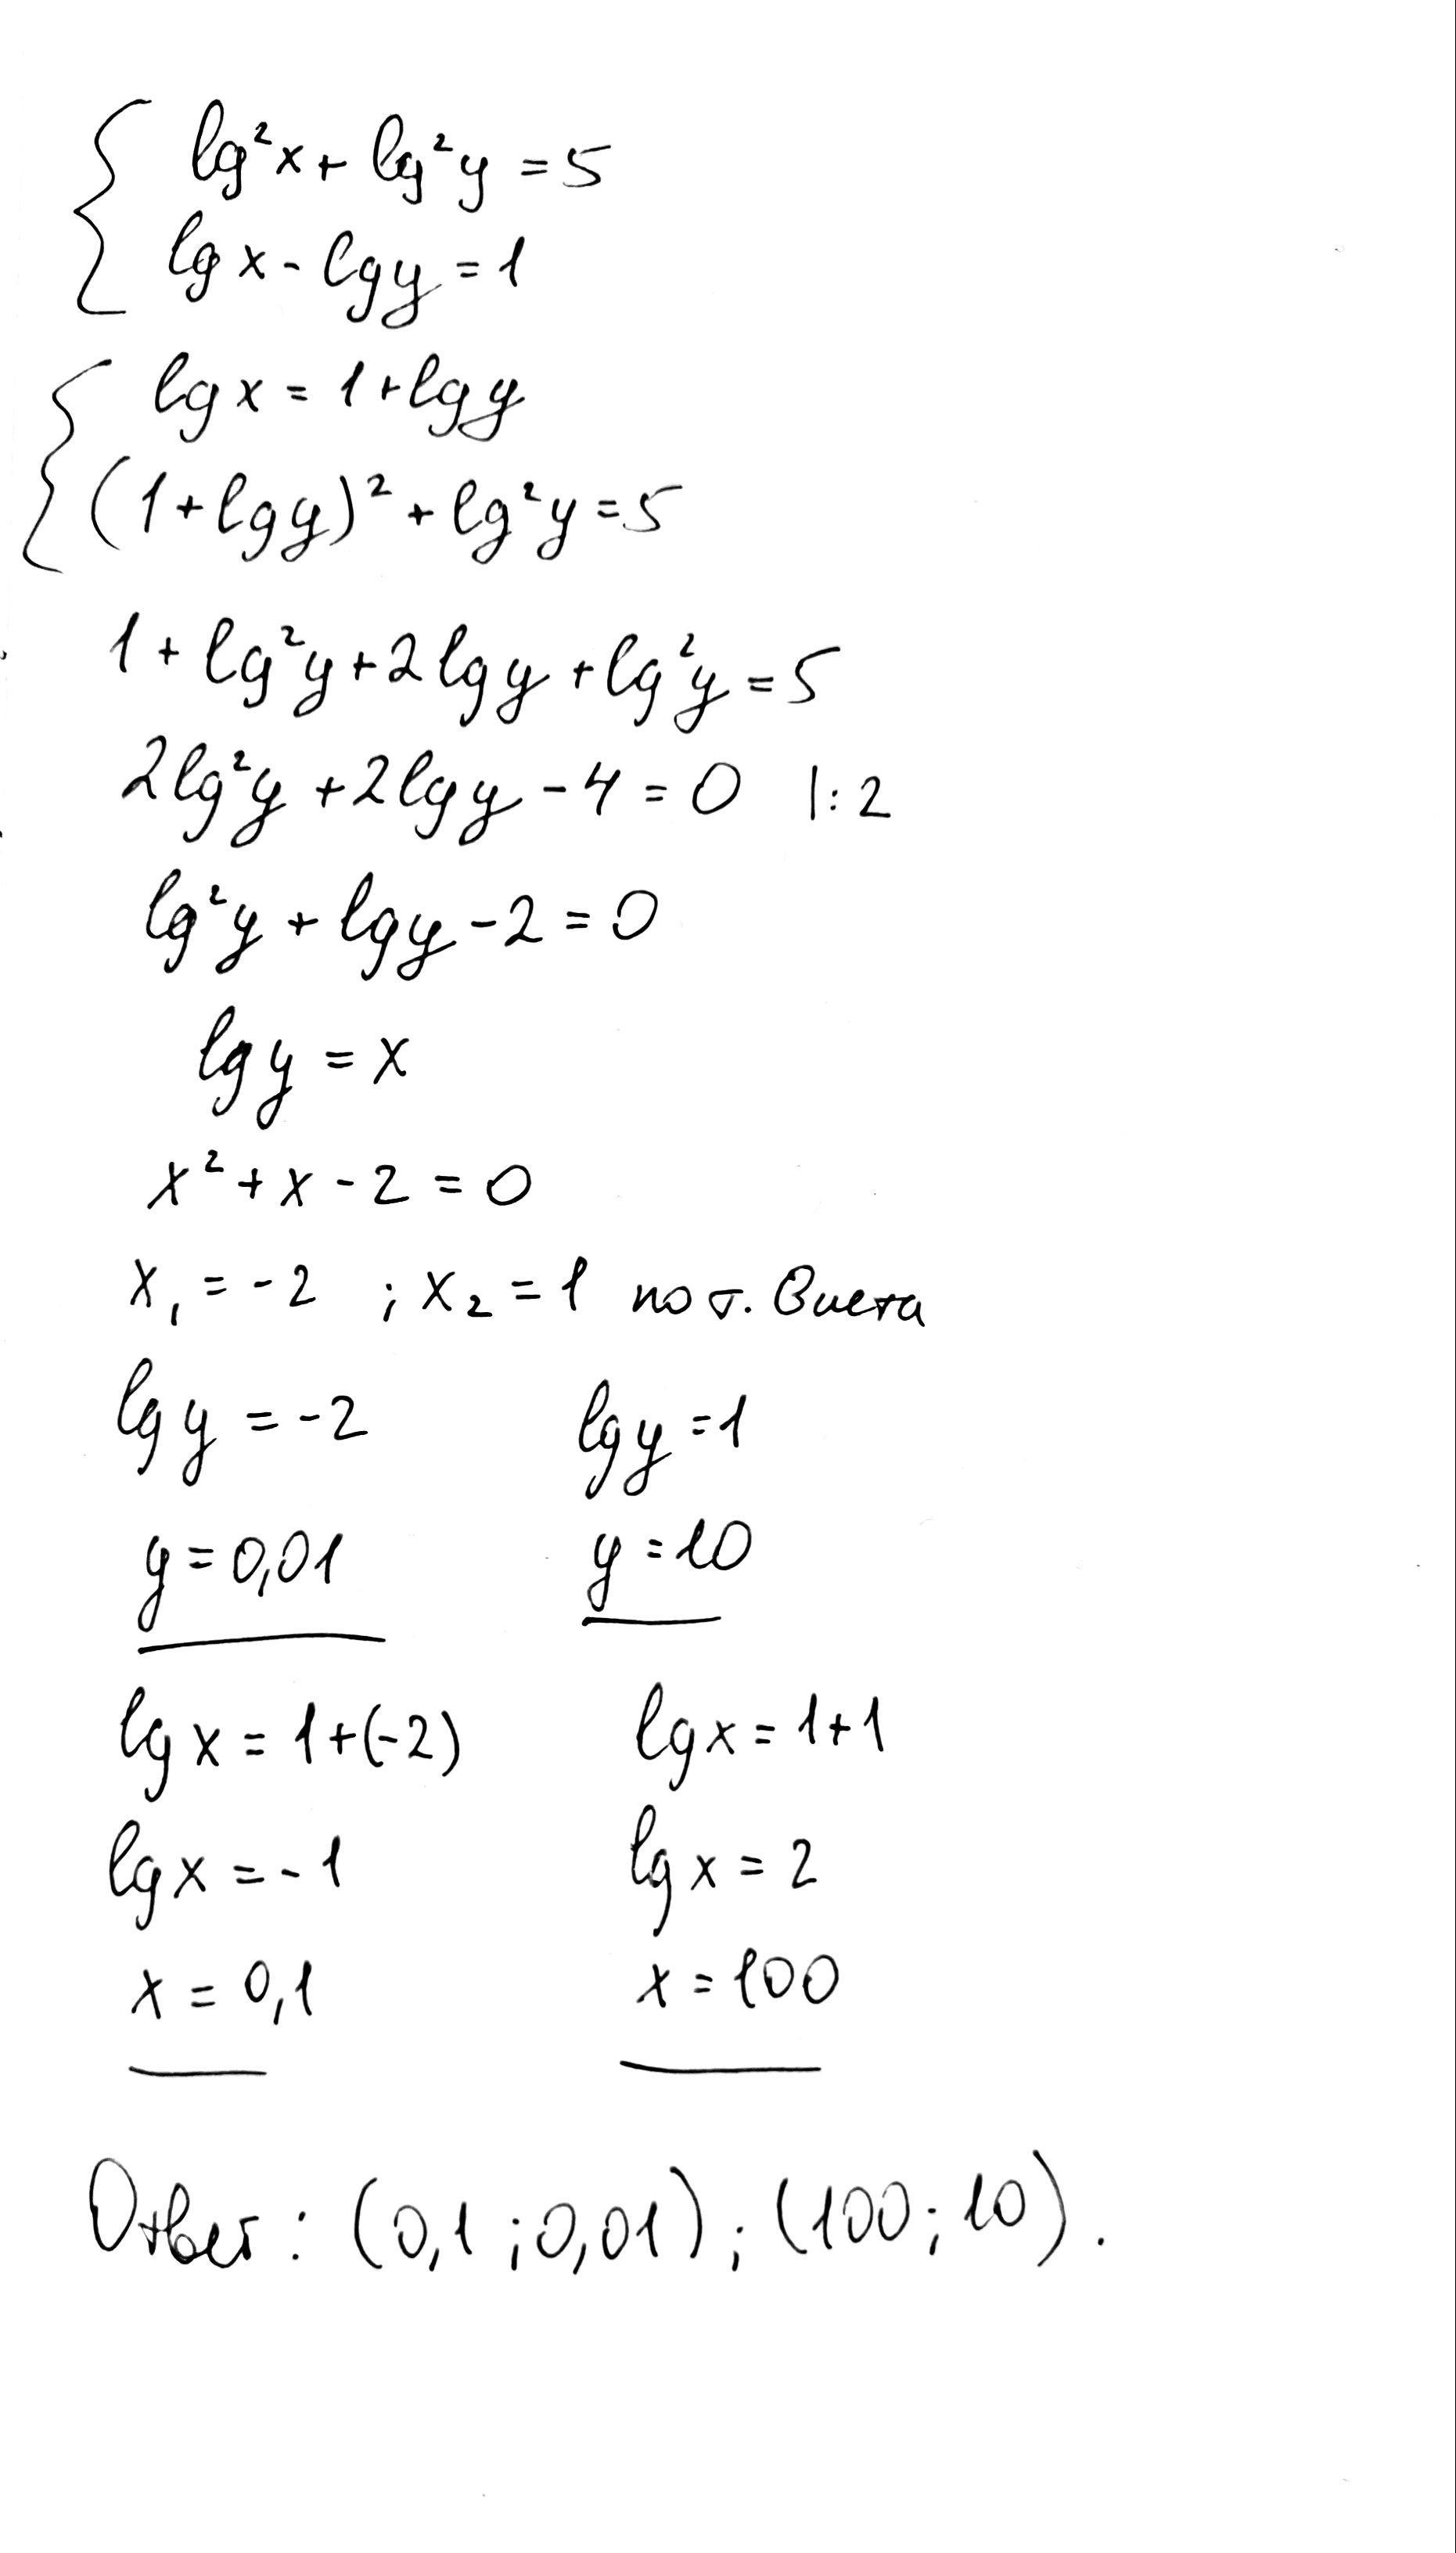 lg²x + lg²y = 5
lg x - lg y = 1
lg x = 1 + lg y
(1 + lg y)² + lg²y = 5
1 + lg²y + 2 lg y + lg²y = 5
2 lg²y + 2 lg y - 4 = 0 |: 2
lg²y + lg y - 2 = 0
lg y = x
x² + x - 2 = 0
x₁ = -2 ; x₂ = 1 по т. Виета
lg y = -2 lg y = 1
y = 0,01 y = 10
lg x = 1 + (-2) lg x = 1 + 1
lg x = -1 lg x = 2
x = 0,1 x = 100
Ответ: (0,1 ; 0,01) ; (100 ; 10).